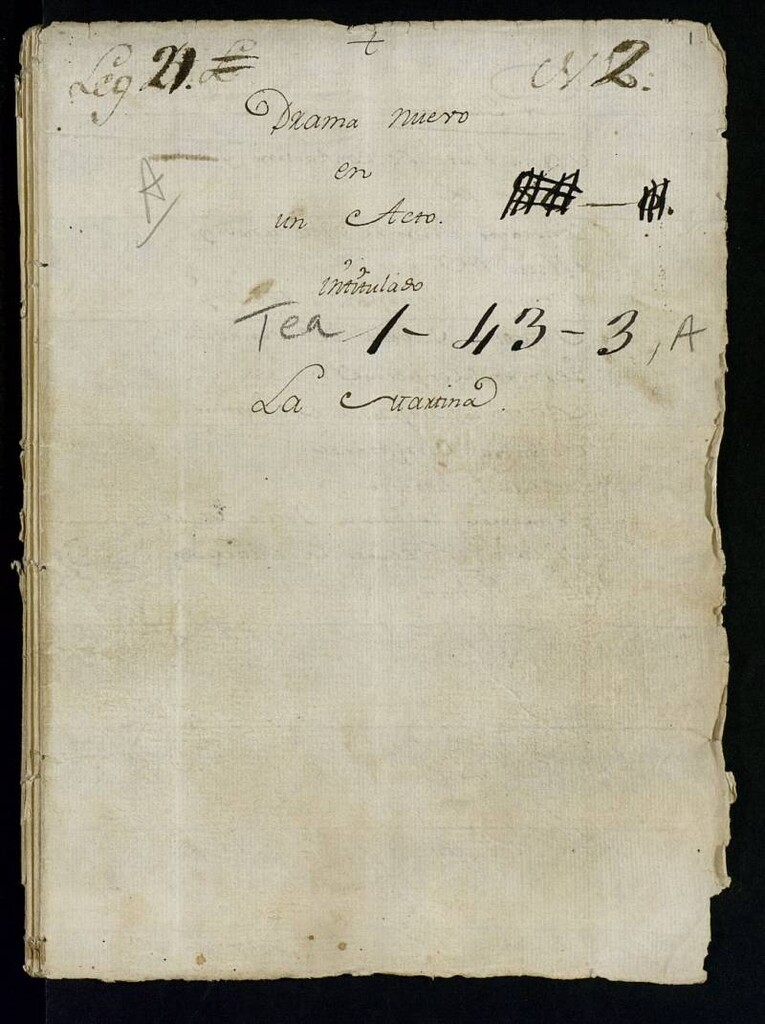 1
Leg 21. L N 2.
Drama nuevo
en
A
un Acto.
intitulado
Tea 1-43-3, A
La Martina.